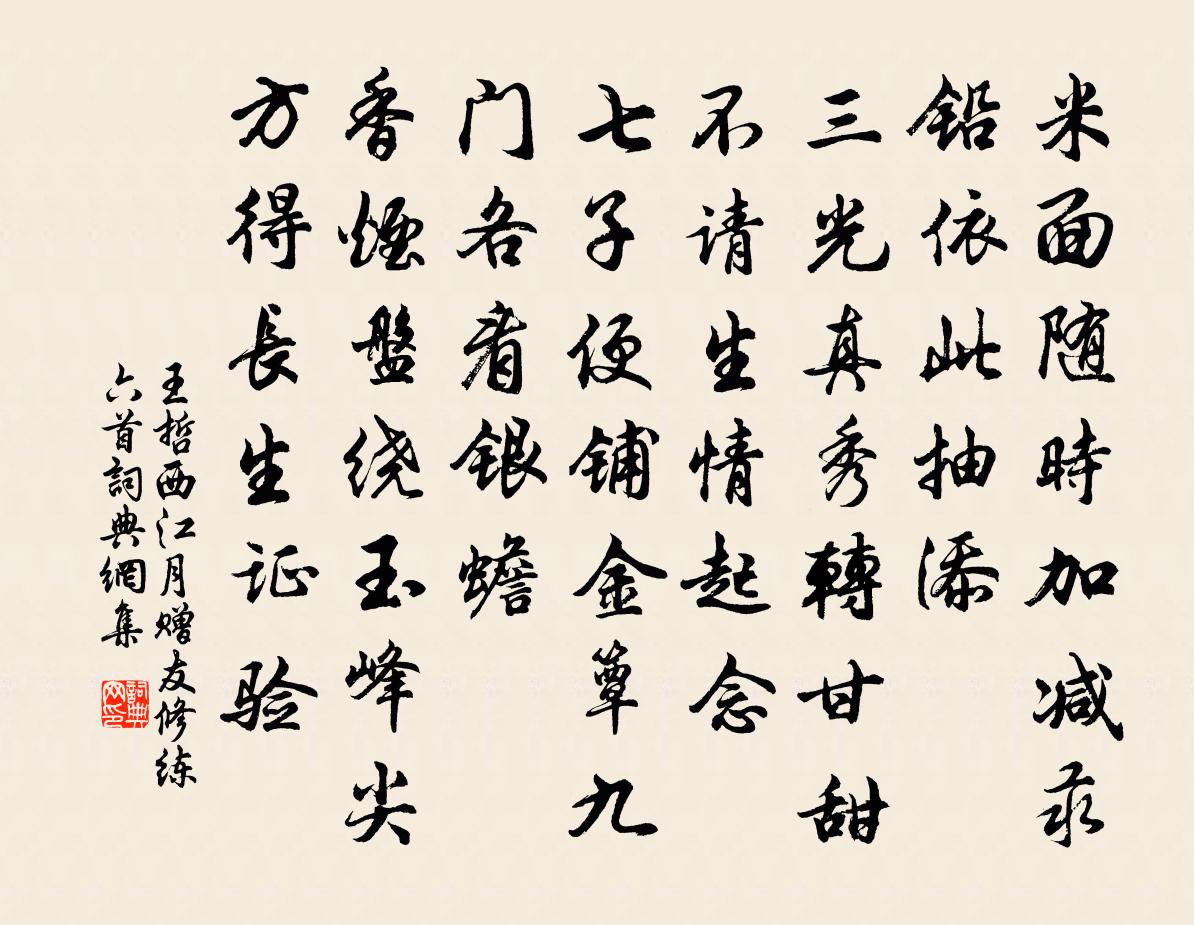 米面随時加减汞
铅依此抽添
三光真秀轉甘甜
不请生情起念
七子便铺金簟九
门各看银蟾
香煙盤绕玉峰尖
方得長生证验
王哲西江月赠友修练
六首詞典網集
詞典网印